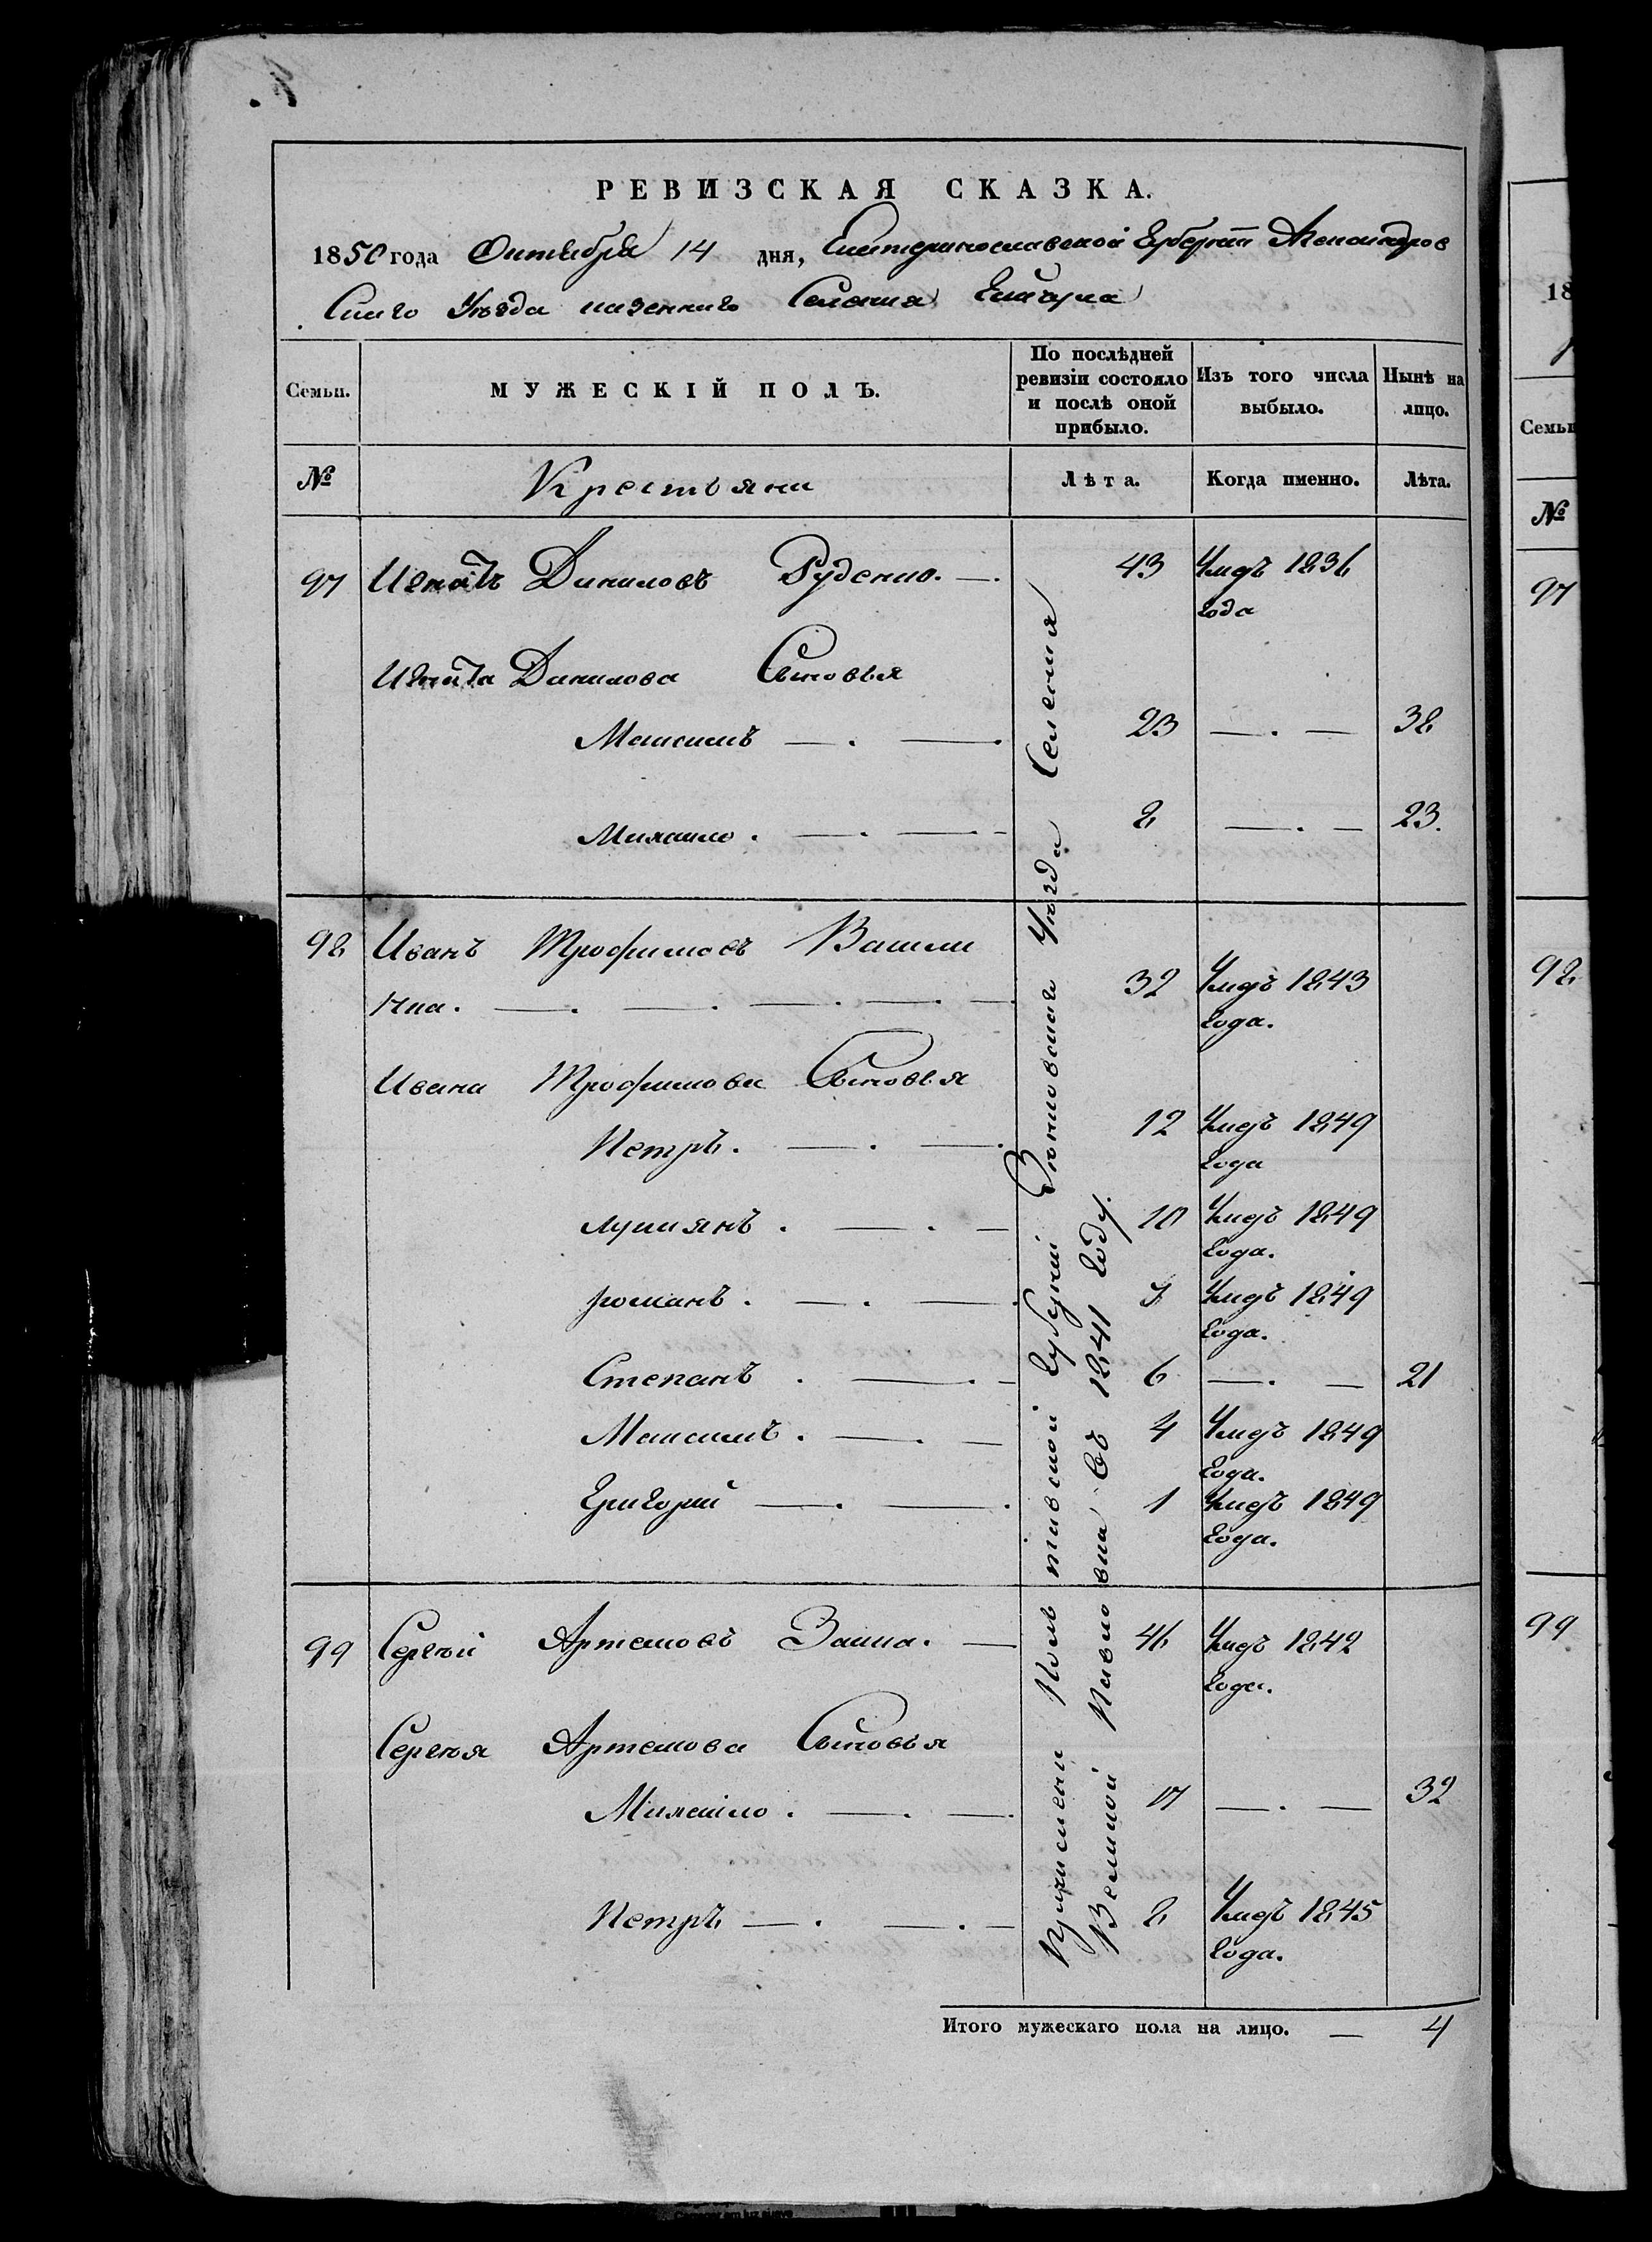 РЕВИЗСКАЯ СКАЗКА.
1850 года Октября 14 дня, Екатеринославской Губерніи Александров
Скаго Уѣзда казеннаго Селенія
Семьи.
МУЖЕСКІЙ ПОЛЪ.
По послѣдней ревизіи состояло и послѣ оной прибыло.
Изъ того числа выбыло.
Нынѣ на лицо.
№ Крестьяни Лѣта. Когда именно. Лѣта.
97 Игнатъ Даниловъ Руденко. 43 Умеръ 1836
года
Игната Данилова Сыновья
Максимъ 23 38
Михайло. 8 23.
98 Иванъ Трофимовъ
32 Умеръ 1843
года.
Ивана Трофимова Сыновья
Петръ. 12 Умеръ 1849
года
лукиянъ. 10 Умеръ 1849
года.
романъ. Умеръ 1849
года.
Степанъ. 6 21
Максимъ. 4 Умеръ 1849
года.
Григорій 1 Умеръ 1849
года.
99 Сергѣй Артемовъ Заика. 46 Умеръ 1842
года.
Сергѣя Артемова Сыновья
Михайло. 17 32
Петръ 8 Умеръ 1845
года.
Причислены Полтавской Губерніи Зѣньковскаго Уѣзда Селенія
Великой Павловки въ 1841 году.
Итого мужескаго пола на лицо. 4
18
Семьи
№
97
98
99